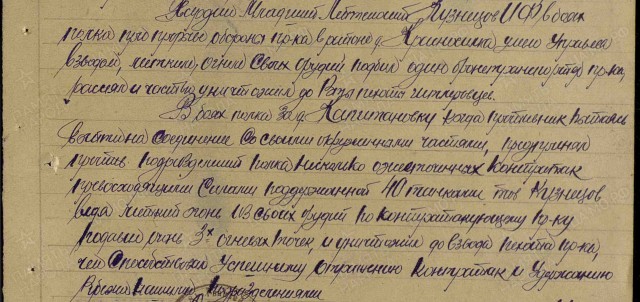 Гвардии Младший Лейтенант Кузнецов И Ф в боях
полка при прорыве обороны пр-ка в районе д. умело управляя
взводом, метким огнем своих орудий подбил один бронетранспортер пр-ка,
рассеял и частью уничтожил до Роты пехоты гитлеровцев.
В боях полка за д. Капитановку когда противник пытаясь
выйти на соединение со своими окруженными частями, предпринял
против подразделений полка несколько ожесточенных контратак
превосходящими силами поддержанной 40 танками тов Кузнецов
ведя меткий огонь из своих орудий по контратакующему пр-ку
подавил огонь 3х огневых точек и уничтожил до взвода пехоты пр-ка,
чем способствовал успешному отражению контратак и удержанию
нашими подразделениями